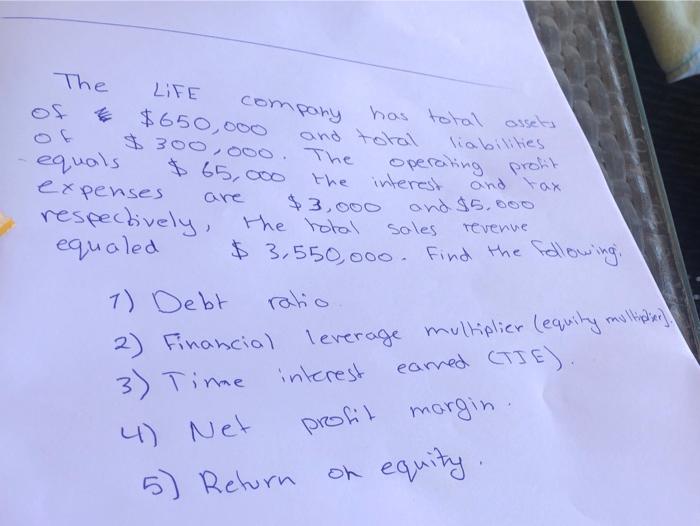 The LiFE company has total assets
of $650,000 and total liabilities
of $300,000. The operating profit
equals $65,000 the interest and tax
expenses are $3,000 and $5.000
respectively, the total sales revenue
equaled $3,550,000. Find the following:
1) Debt ratio
2) Financial leverage multiplier (equity multiplier).
3) Time interest earned (TIE).
4) Net profit margin.
5) Return on equity.